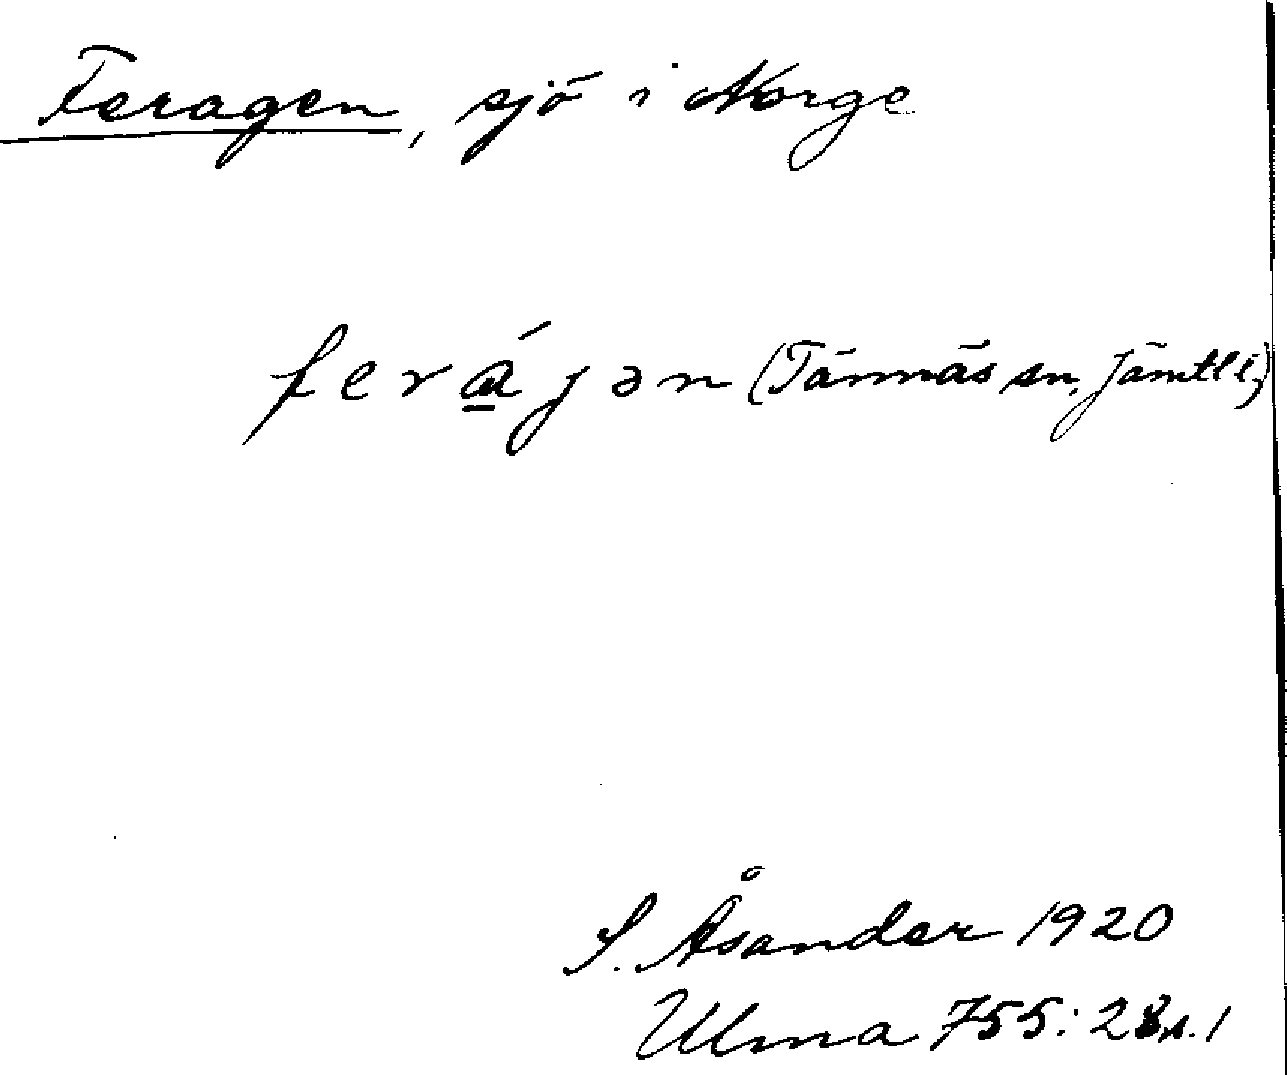 Feragen, sjö i Norge
ferá̱jən (Tännäs sn, Jämtl l,)
S. Åsander 1920
Ulma 755: 28 s. 1